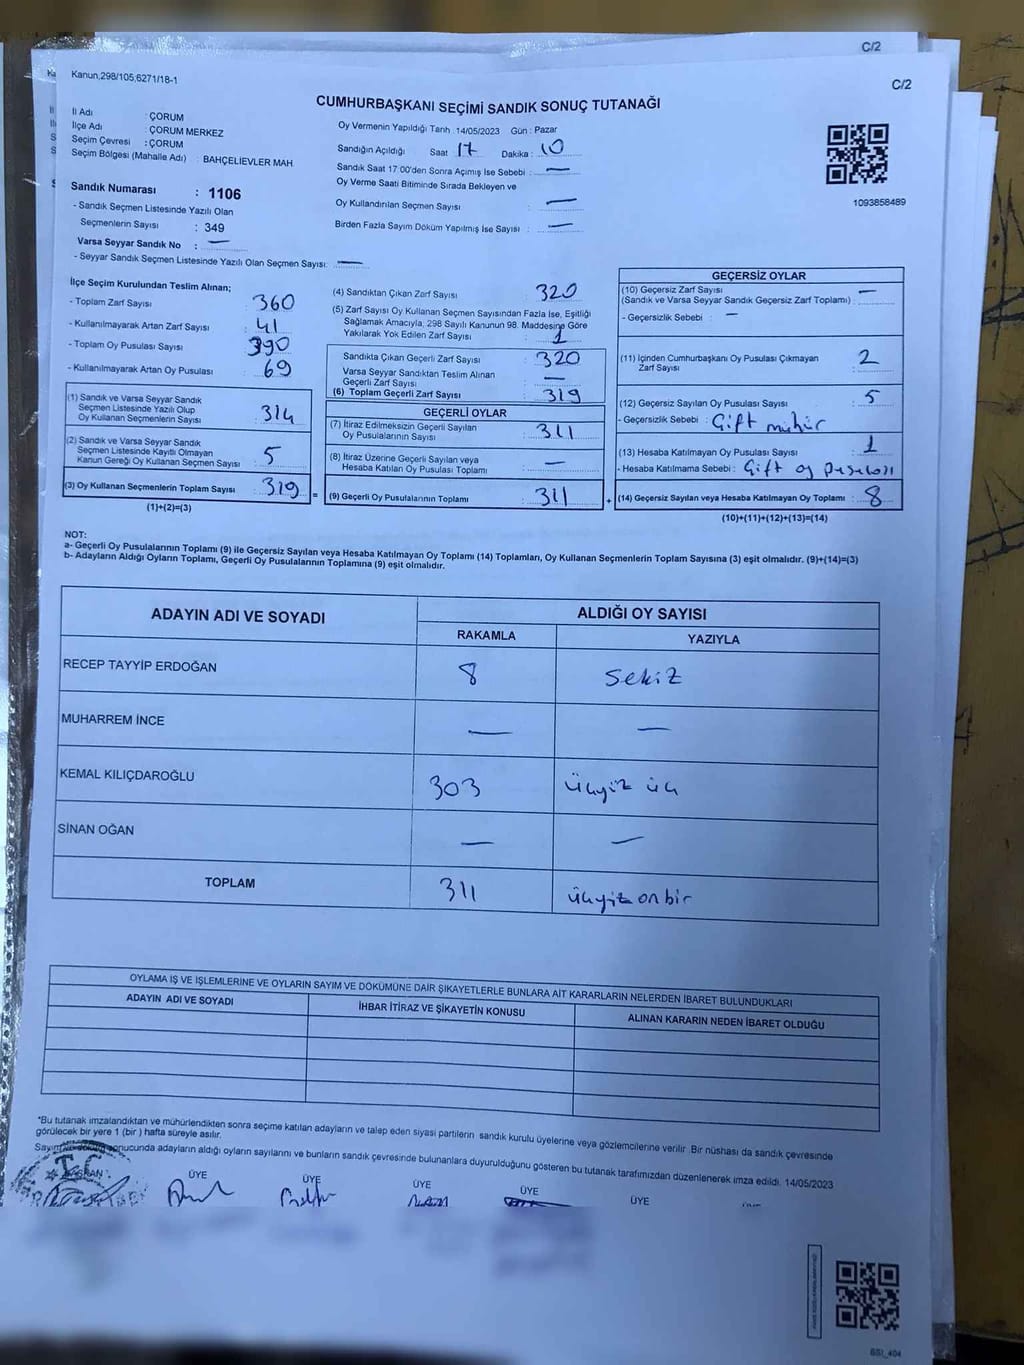 C/2
C/2
Kanun,298/105,6271/18-1
CUMHURBAŞKANI SEÇİMİ SANDIK SONUÇ TUTANAĞI
İl Adı : ÇORUM
İlçe Adı : ÇORUM MERKEZ
Seçim Çevresi : ÇORUM
Seçim Bölgesi (Mahalle Adı) : BAHÇELİEVLER MAH
Sandık Numarası : 1106
- Sandık Seçmen Listesinde Yazılı Olan
Seçmenlerin Sayısı : 349
Varsa Seyyar Sandık No : —
- Seyyar Sandık Seçmen Listesinde Yazılı Olan Seçmen Sayısı: —
Oy Vermenin Yapıldığı Tarih 14/05/2023 Gün : Pazar
Sandığın Açıldığı Saat 17 Dakika : 10
Sandık Saat 17:00'den Sonra Açılmış İse Sebebi : —
Oy Verme Saati Bitiminde Sırada Bekleyen ve
Oy Kullandırılan Seçmen Sayısı : —
Birden Fazla Sayım Döküm Yapılmış İse Sayısı : —
1093858489
İlçe Seçim Kurulundan Teslim Alınan;
- Toplam Zarf Sayısı : 360
- Kullanılmayarak Artan Zarf Sayısı : 41
- Toplam Oy Pusulası Sayısı : 390
- Kullanılmayarak Artan Oy Pusulası : 69
(1) Sandık ve Varsa Seyyar Sandık
Seçmen Listesinde Yazılı Olup
Oy Kullanan Seçmenlerin Sayısı : 314
(2) Sandık ve Varsa Seyyar Sandık
Seçmen Listesinde Kayıtlı Olmayan
Kanun Gereği Oy Kullanan Seçmen Sayısı : 5
(3) Oy Kullanan Seçmenlerin Toplam Sayısı : 319 =
(1)+(2)=(3)
(4) Sandıktan Çıkan Zarf Sayısı : 320
(5) Zarf Sayısı Oy Kullanan Seçmen Sayısından Fazla İse, Eşitliği
Sağlamak Amacıyla, 298 Sayılı Kanunun 98. Maddesine Göre
Yakılarak Yok Edilen Zarf Sayısı : 1
Sandıkta Çıkan Geçerli Zarf Sayısı : 320
Varsa Seyyar Sandıktan Teslim Alınan
Geçerli Zarf Sayısı : —
(6) Toplam Geçerli Zarf Sayısı : 319
GEÇERLİ OYLAR
(7) İtiraz Edilmeksizin Geçerli Sayılan
Oy Pusulalarının Sayısı : 311
(8) İtiraz Üzerine Geçerli Sayılan veya
Hesaba Katılan Oy Pusulası Toplamı : —
(9) Geçerli Oy Pusulalarının Toplamı : 311 +
GEÇERSİZ OYLAR
(10) Geçersiz Zarf Sayısı —
(Sandık ve Varsa Seyyar Sandık Geçersiz Zarf Toplamı) :
- Geçersizlik Sebebi : —
(11) İçinden Cumhurbaşkanı Oy Pusulası Çıkmayan
Zarf Sayısı : 2
(12) Geçersiz Sayılan Oy Pusulası Sayısı : 5
- Geçersizlik Sebebi : Çift mühür
(13) Hesaba Katılmayan Oy Pusulası Sayısı : 1
- Hesaba Katılmama Sebebi : Çift oy pusulası
(14) Geçersiz Sayılan veya Hesaba Katılmayan Oy Toplamı : 8
(10)+(11)+(12)+(13)=(14)
NOT:
a- Geçerli Oy Pusulalarının Toplamı (9) ile Geçersiz Sayılan veya Hesaba Katılmayan Oy Toplamı (14) Toplamları, Oy Kullanan Seçmenlerin Toplam Sayısına (3) eşit olmalıdır. (9)+(14)=(3)
b- Adayların Aldığı Oyların Toplamı, Geçerli Oy Pusulalarının Toplamına (9) eşit olmalıdır.
ADAYIN ADI VE SOYADI ALDIĞI OY SAYISI
RAKAMLA YAZIYLA
RECEP TAYYİP ERDOĞAN 8 Sekiz
MUHARREM İNCE — —
KEMAL KILIÇDAROĞLU 303 üçyüz üç
SİNAN OĞAN — —
TOPLAM 311 üçyüz onbir
OYLAMA İŞ VE İŞLEMLERİNE VE OYLARIN SAYIM VE DÖKÜMÜNE DAİR ŞİKAYETLERLE BUNLARA AİT KARARLARIN NELERDEN İBARET BULUNDUKLARI
ADAYIN ADI VE SOYADI İHBAR İTİRAZ VE ŞİKAYETİN KONUSU ALINAN KARARIN NEDEN İBARET OLDUĞU
*Bu tutanak imzalandıktan ve mühürlendikten sonra seçime katılan adayların ve talep eden siyasi partilerin sandık kurulu üyelerine veya gözlemcilerine verilir .Bir nüshası da sandık çevresinde
görülecek bir yere 1 (bir ) hafta süreyle asılır.
sonucunda adayların aldığı oyların sayılarını ve bunların sandık çevresinde bulunanlara duyurulduğunu gösteren bu tutanak tarafımızdan düzenlenerek imza edildi. 14/05/2023
T.C.
BAŞKAN ÜYE ÜYE ÜYE ÜYE ÜYE
BSI_404